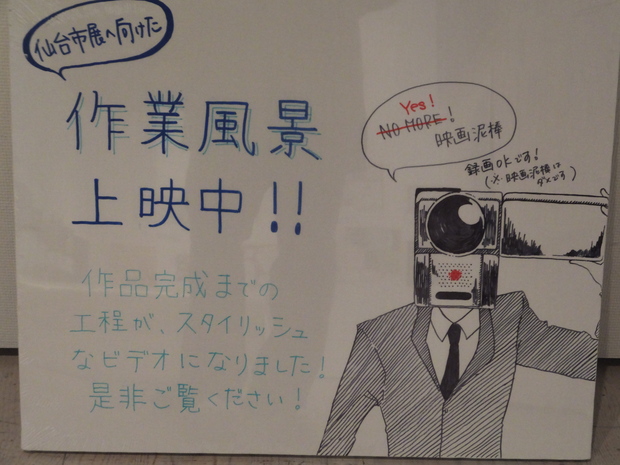 仙台市展へ向けた
作業風景
上映中!!
Yes!
NO MORE!
映画泥棒
録画OKです!
(※映画泥棒は
ダメです)
作品完成までの
工程が、スタイリッシュ
なビデオになりました!
是非ご覧ください!